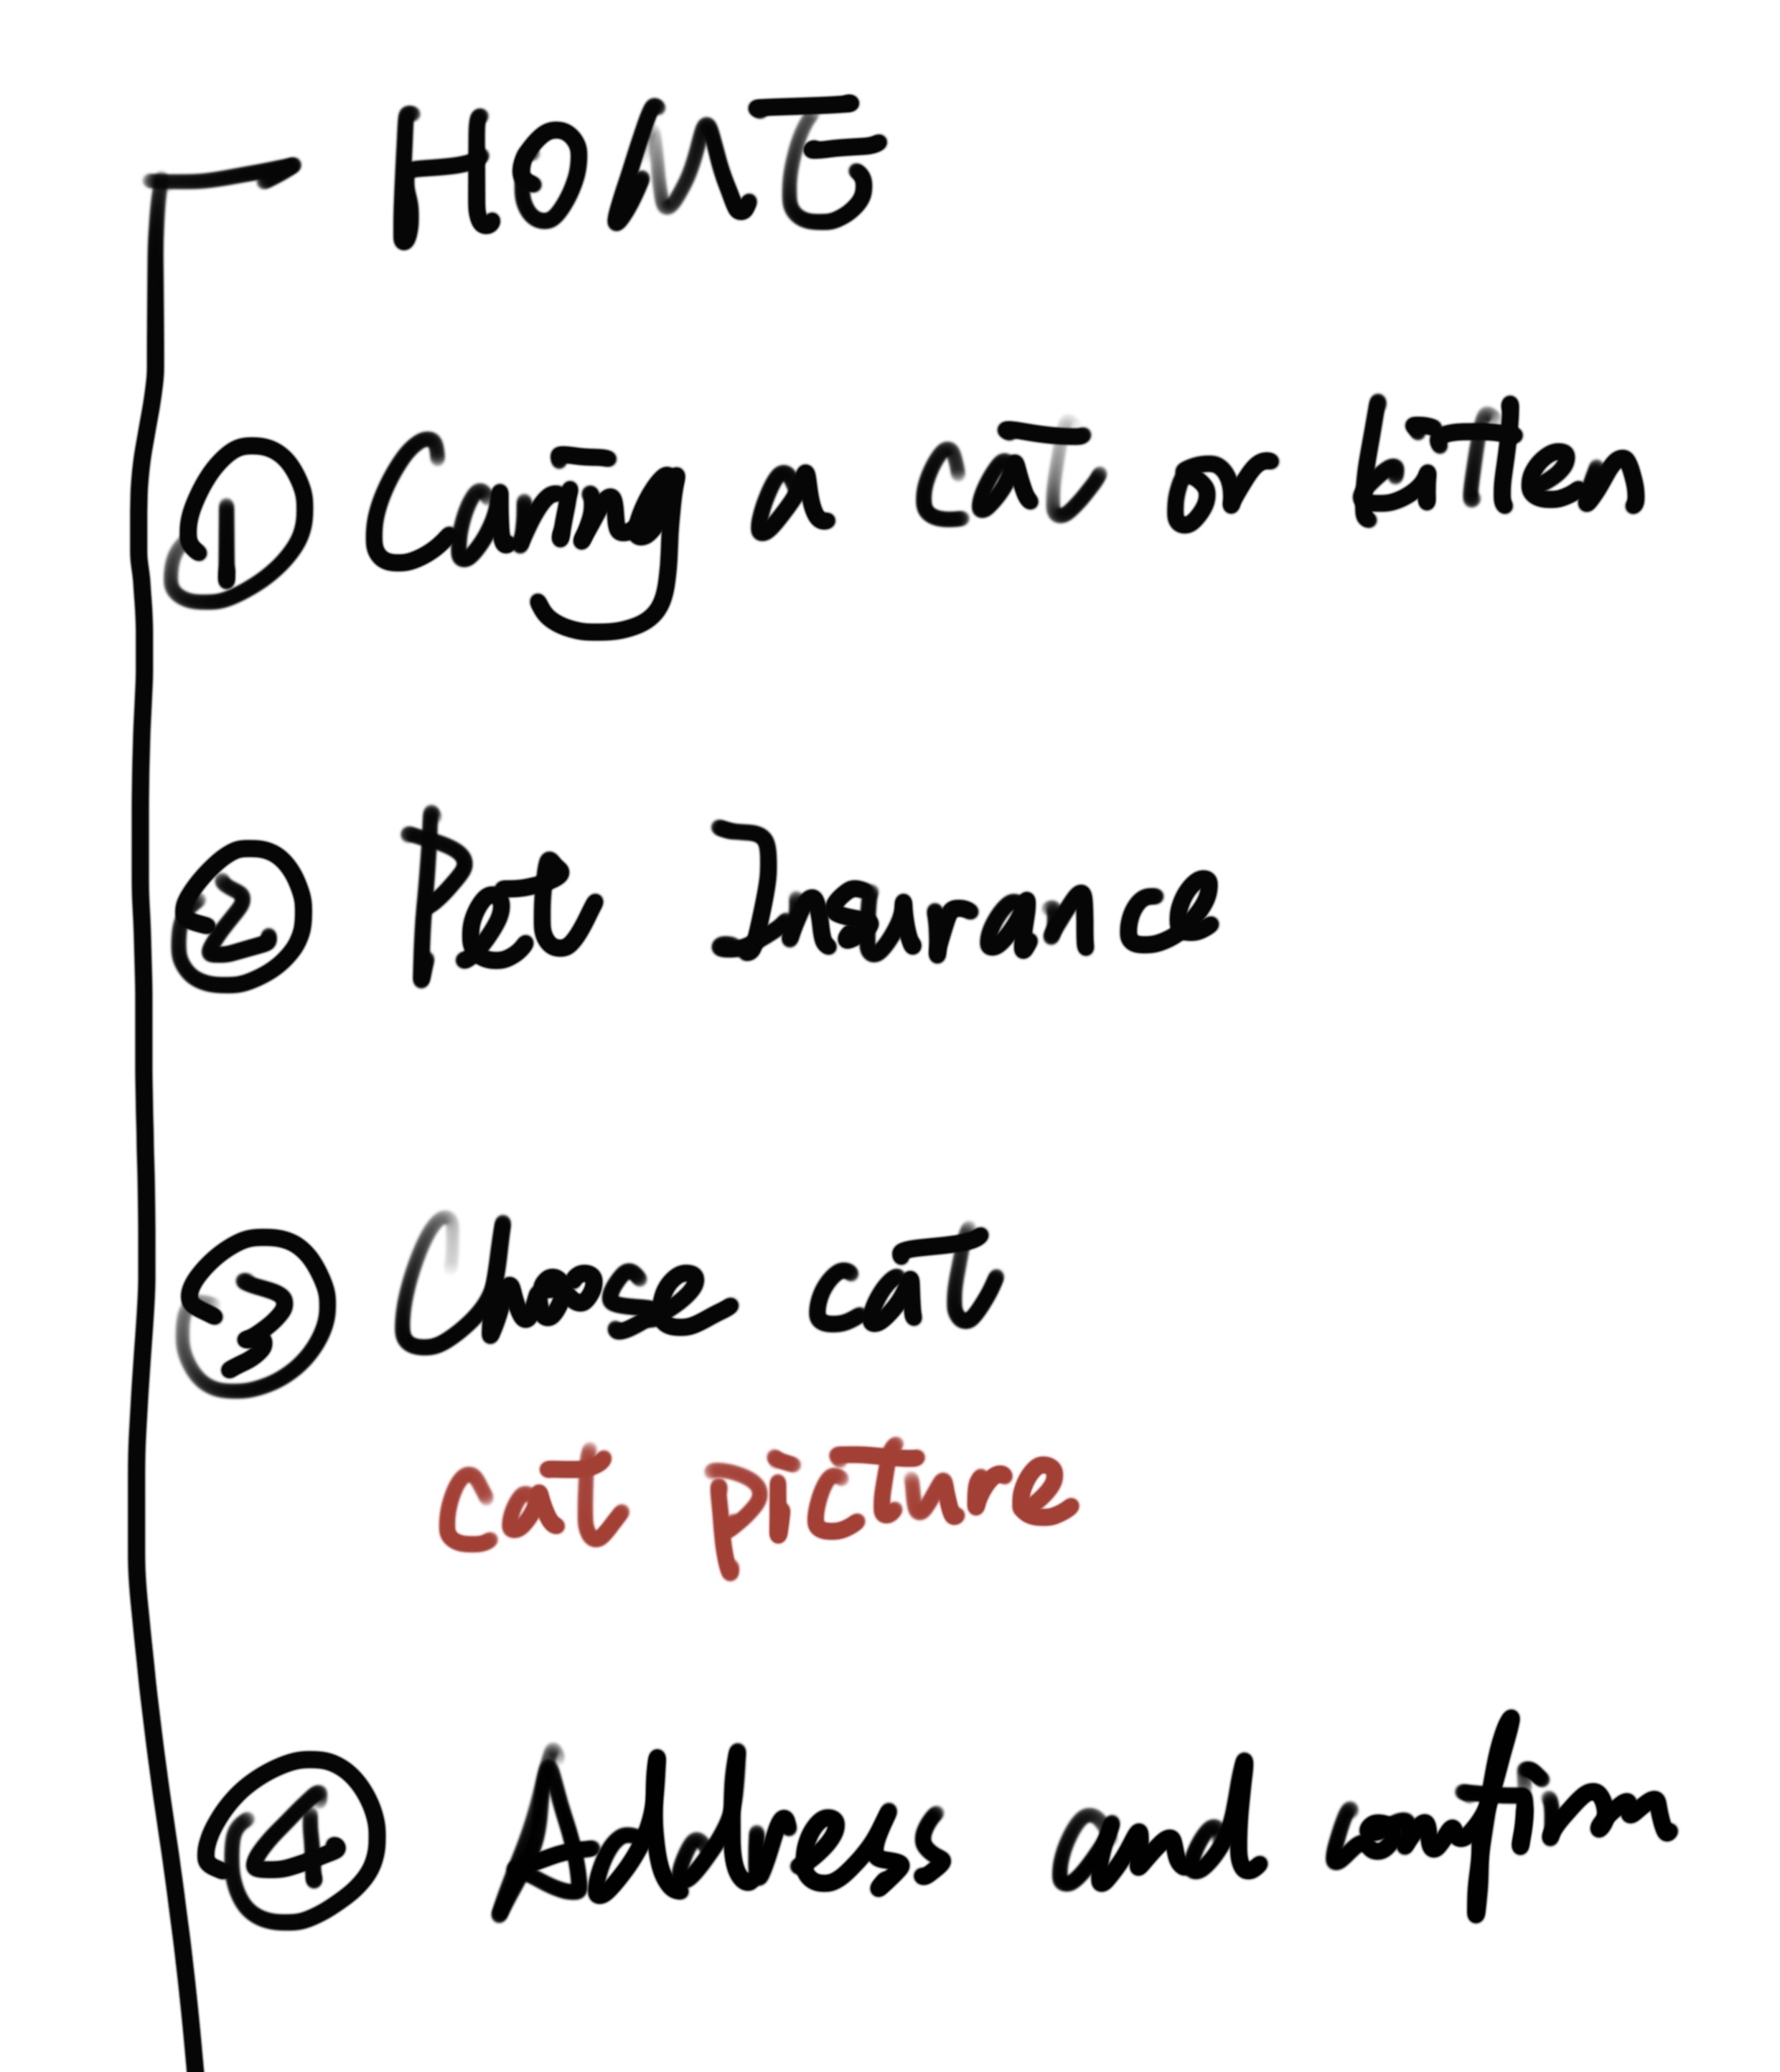 HOME
① Caring a cat or kitten
② Pet Insurance
③ Choose cat
cat picture
④ Address and confirm